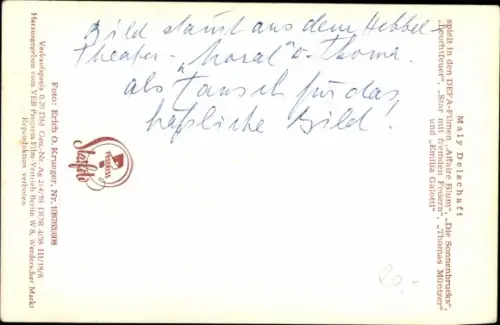 Bild stammt aus dem Hebbel-
Theater - „Moral" v. Thoma.
als Tausch für das
häßliche Bild!
Maly Delschaft
spielt in den DEFA-Filmen „Affaire Blum", „Die Sonnenbrucks",
„Leuchtfeuer", „Star mit fremden Federn", „Thomas Müntzer"
und „Emilia Galotti"
PROGRESS
Starfoto
Foto: Erich O. Krueger, Nr.
Verkaufspreis 0,20 DM Gen.-Nr. Ag 214/58 DDR 4/58 III/18/6
Herausgegeben vom VEB Progress Film-Vertrieb Berlin W 8, Werderscher Markt
Reproduktion verboten
20,-